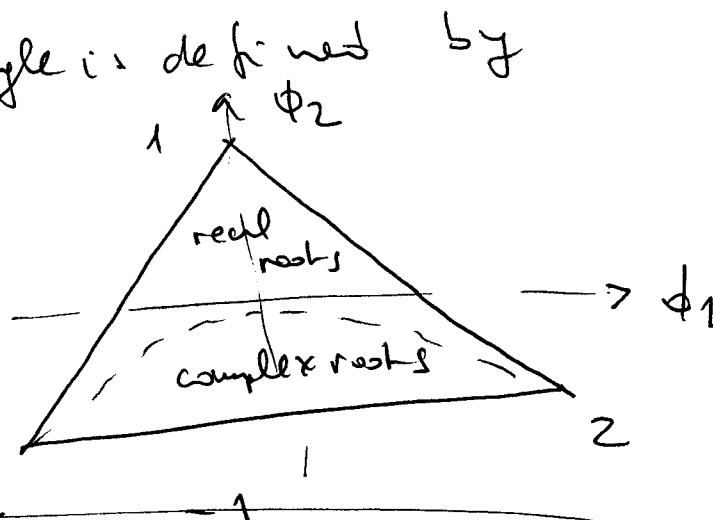 gle is defined by
1 ϕ2
real
roots
ϕ1
complex roots
2
-1